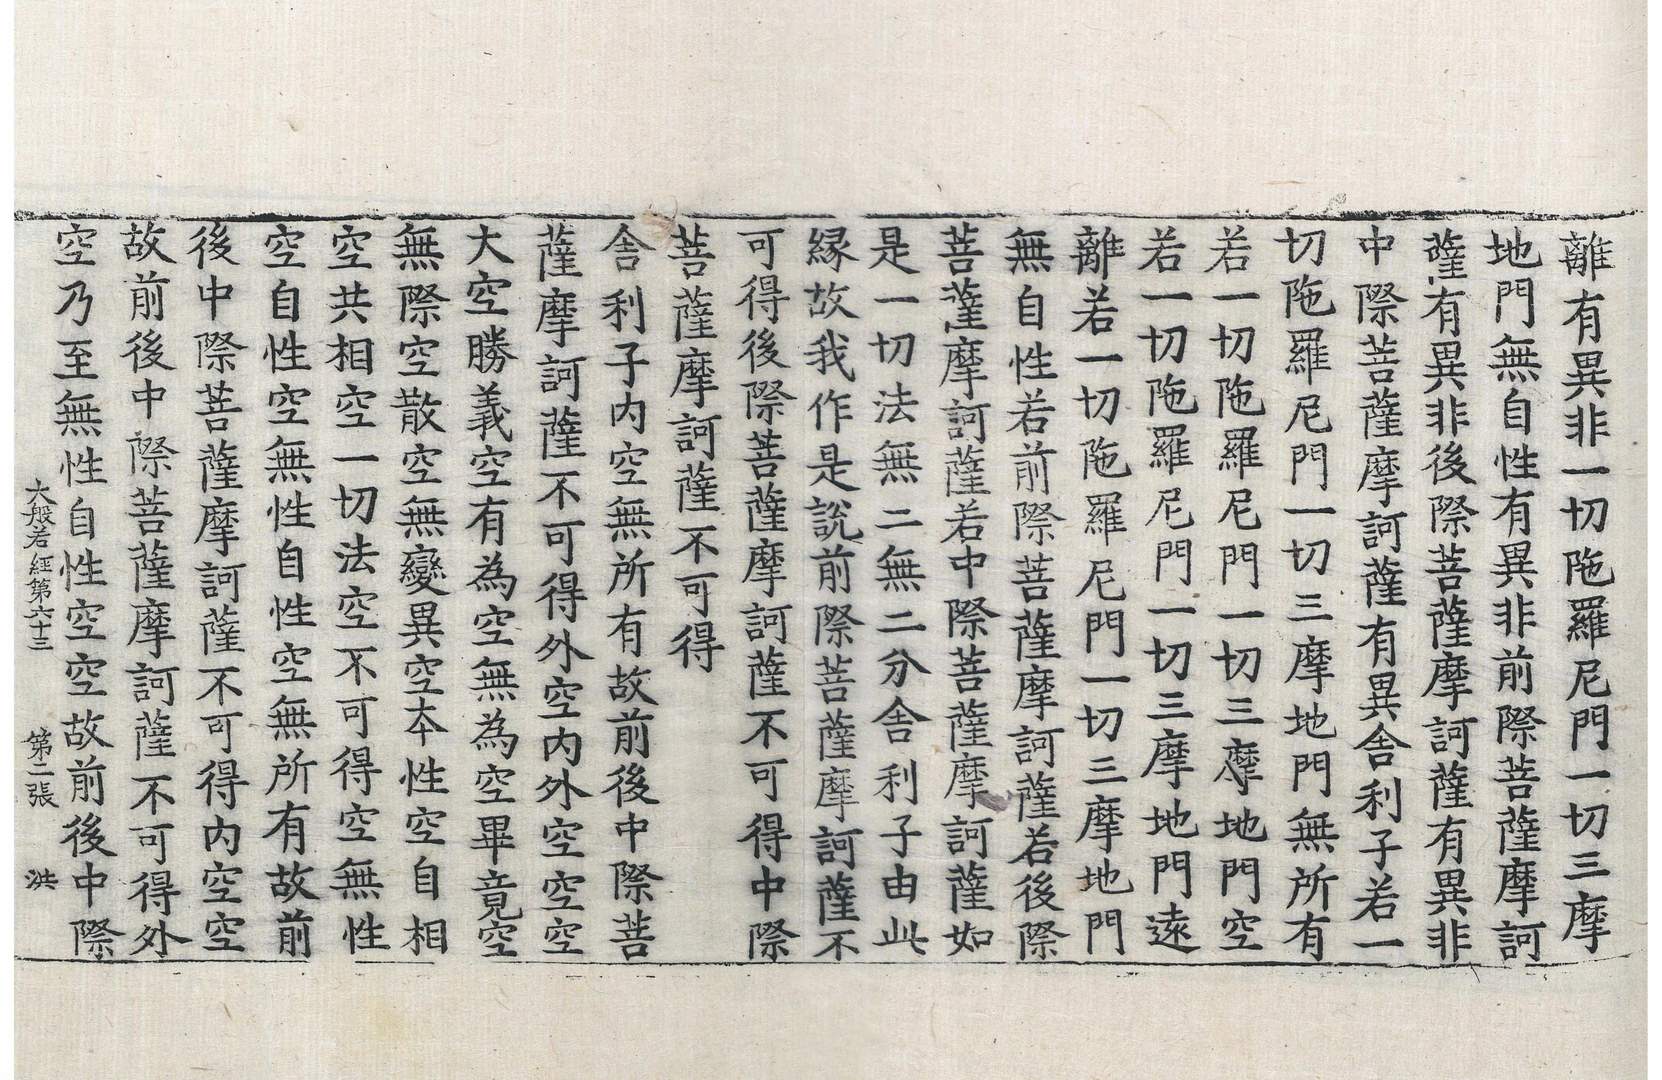 離有異非一切陁羅尼門一切三摩
地門無自性有異非前際菩薩摩訶
薩有異非後際菩薩摩訶薩有異非
中際菩薩摩訶薩有異舎利子若一
切陁羅尼門一切三摩地門無所有
若一切陁羅尼門一切三摩地門空
若一切陁羅尼門一切三摩地門遠
離若一切陁羅尼門一切三摩地門
無自性若前際菩薩摩訶薩若後際
菩薩摩訶薩若中際菩薩摩訶薩如
是一切法無二無二分舎利子由此
縁故我作是說前際菩薩摩訶薩不
可得後際菩薩摩訶薩不可得中際
菩薩摩訶薩不可得
舎利子内空無所有故前後中際菩
薩摩訶薩不可得外空内外空空空
大空勝義空有為空無為空畢竟空
無際空散空無變異空本性空自相
空共相空一切法空不可得空無性
空自性空無性自性空無所有故前
後中際菩薩摩訶薩不可得内空空
故前後中際菩薩摩訶薩不可得外
空乃至無性自性空空故前後中際
大般若經第六十三 第二張 洪